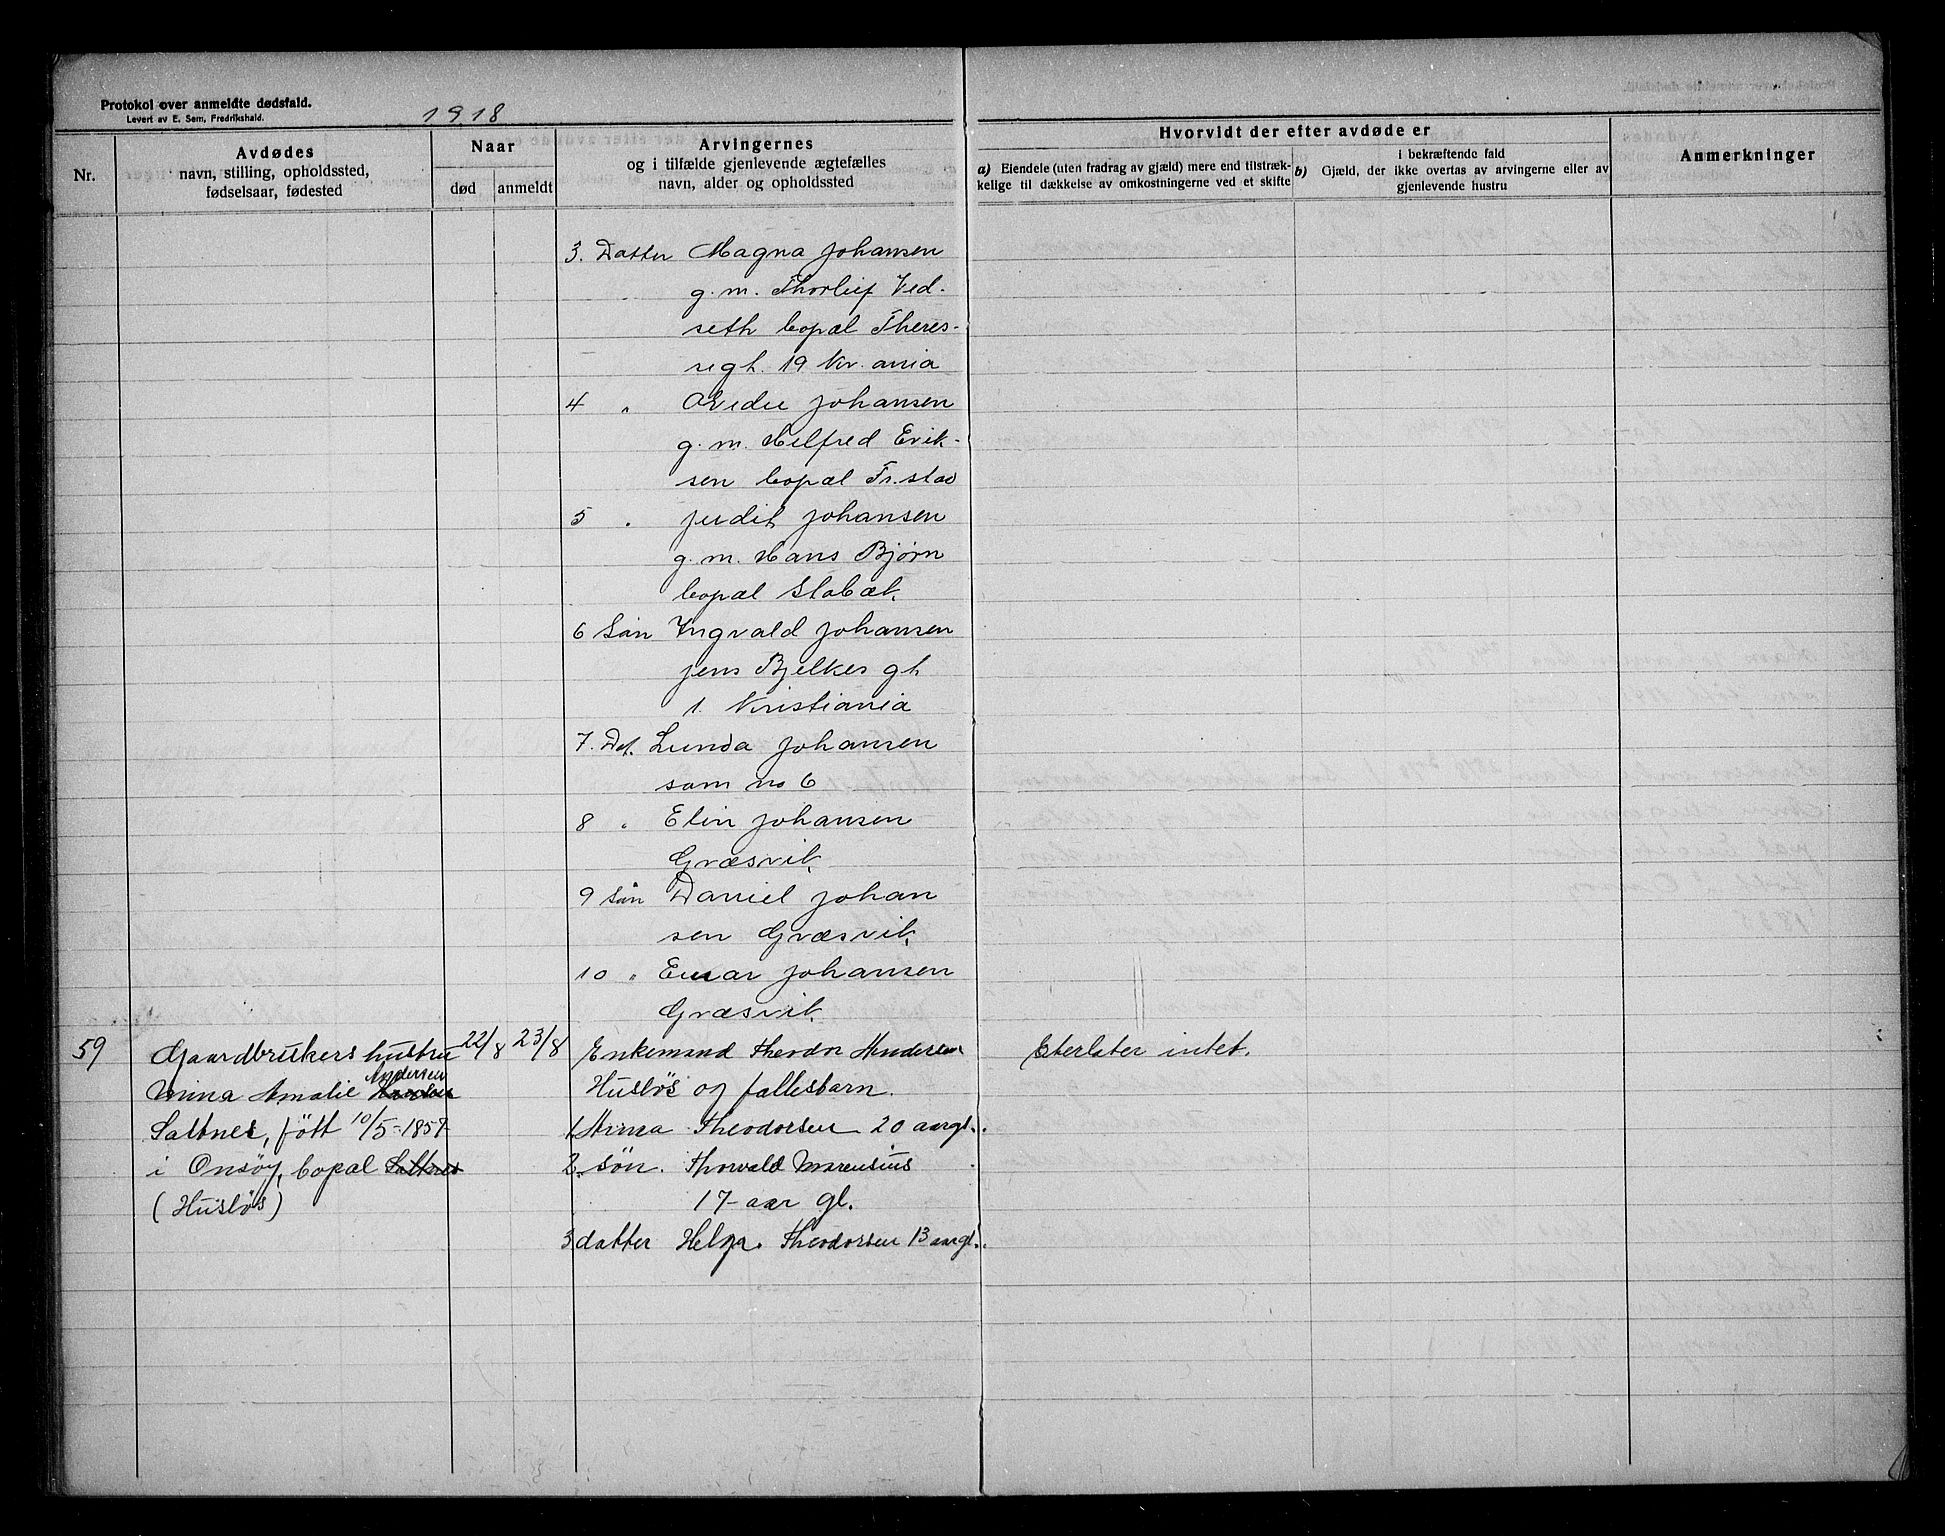 Protokol over anmeldte dødsfald.
Levert av E. Sem, Fredrikshald.
1918
Nr.
Avdødes
navn, stilling, opholdssted,
fødselsaar, fødested
Naar
død
anmeldt
Arvingernes
og i tilfælde gjenlevende ægtefælles
navn, alder og opholdssted
Hvorvidt der efter avdøde er
a) Eiendele (uten fradrag av gjæld) mere end tilstræk-
kelige til dækkelse av omkostningerne ved et skifte
i bekræftende fald
b) Gjæld, der ikke overtas av arvingerne eller av
gjenlevende hustru
Anmerkninger
3. Datter Magna Johansen
g. m. Thorleif Ved-
seth bopæl Theres-
segt. 19 Kr.ania
4 " Johansen
g. m. Hilfred Erik-
sen bopæl Fr.stad
5 " Judit Johansen
g. m. Hans Bjørn
bopæl Stabæk.
6 Søn Ingvald Johansen
Jens Bjelkes gt
1. Kristiania
7. Dat. Lunda Johansen
som no 6
8 " Elin Johansen
Græsvik.
9 søn Daniel Johan
sen Græsvik.
10 " Einar Johansen
Græsvik.
59
Gaardbrukers hustru
Mina Amalie Andersen
Saltnes, født 10/5-1857
i Onsøy, bopæl Saltnes
(Husløs)
22/8
23/8
Enkemand Theodor Andersen
Husløs og fallesbarn.
1 Anna Theodorsen 20 aargl.
2. søn. Thorvald Marensius
17 aar gl.
3 datter Helga Theodorsen 13 aargl.
Eterlater intet.